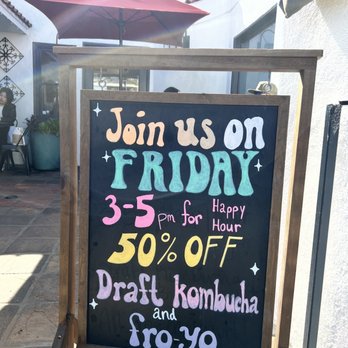 Join us on
FRIDAY
3-5 pm for Happy Hour
50% OFF
Draft kombucha
and
fro-yo